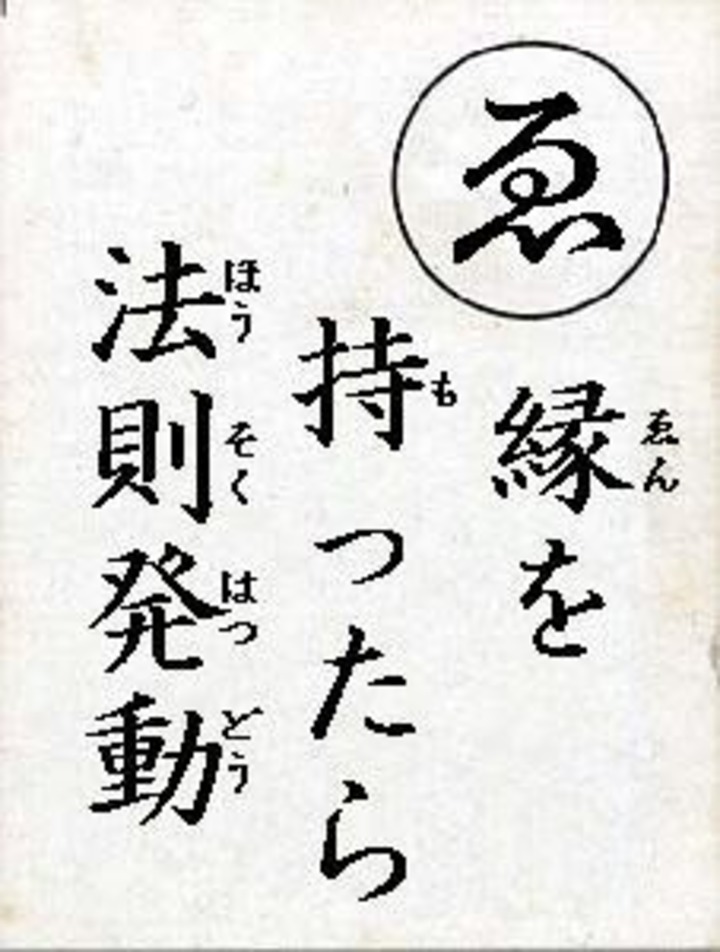 ゑ
縁を
ゑん
持ったら
も
法則発動
ほうそくはつどう